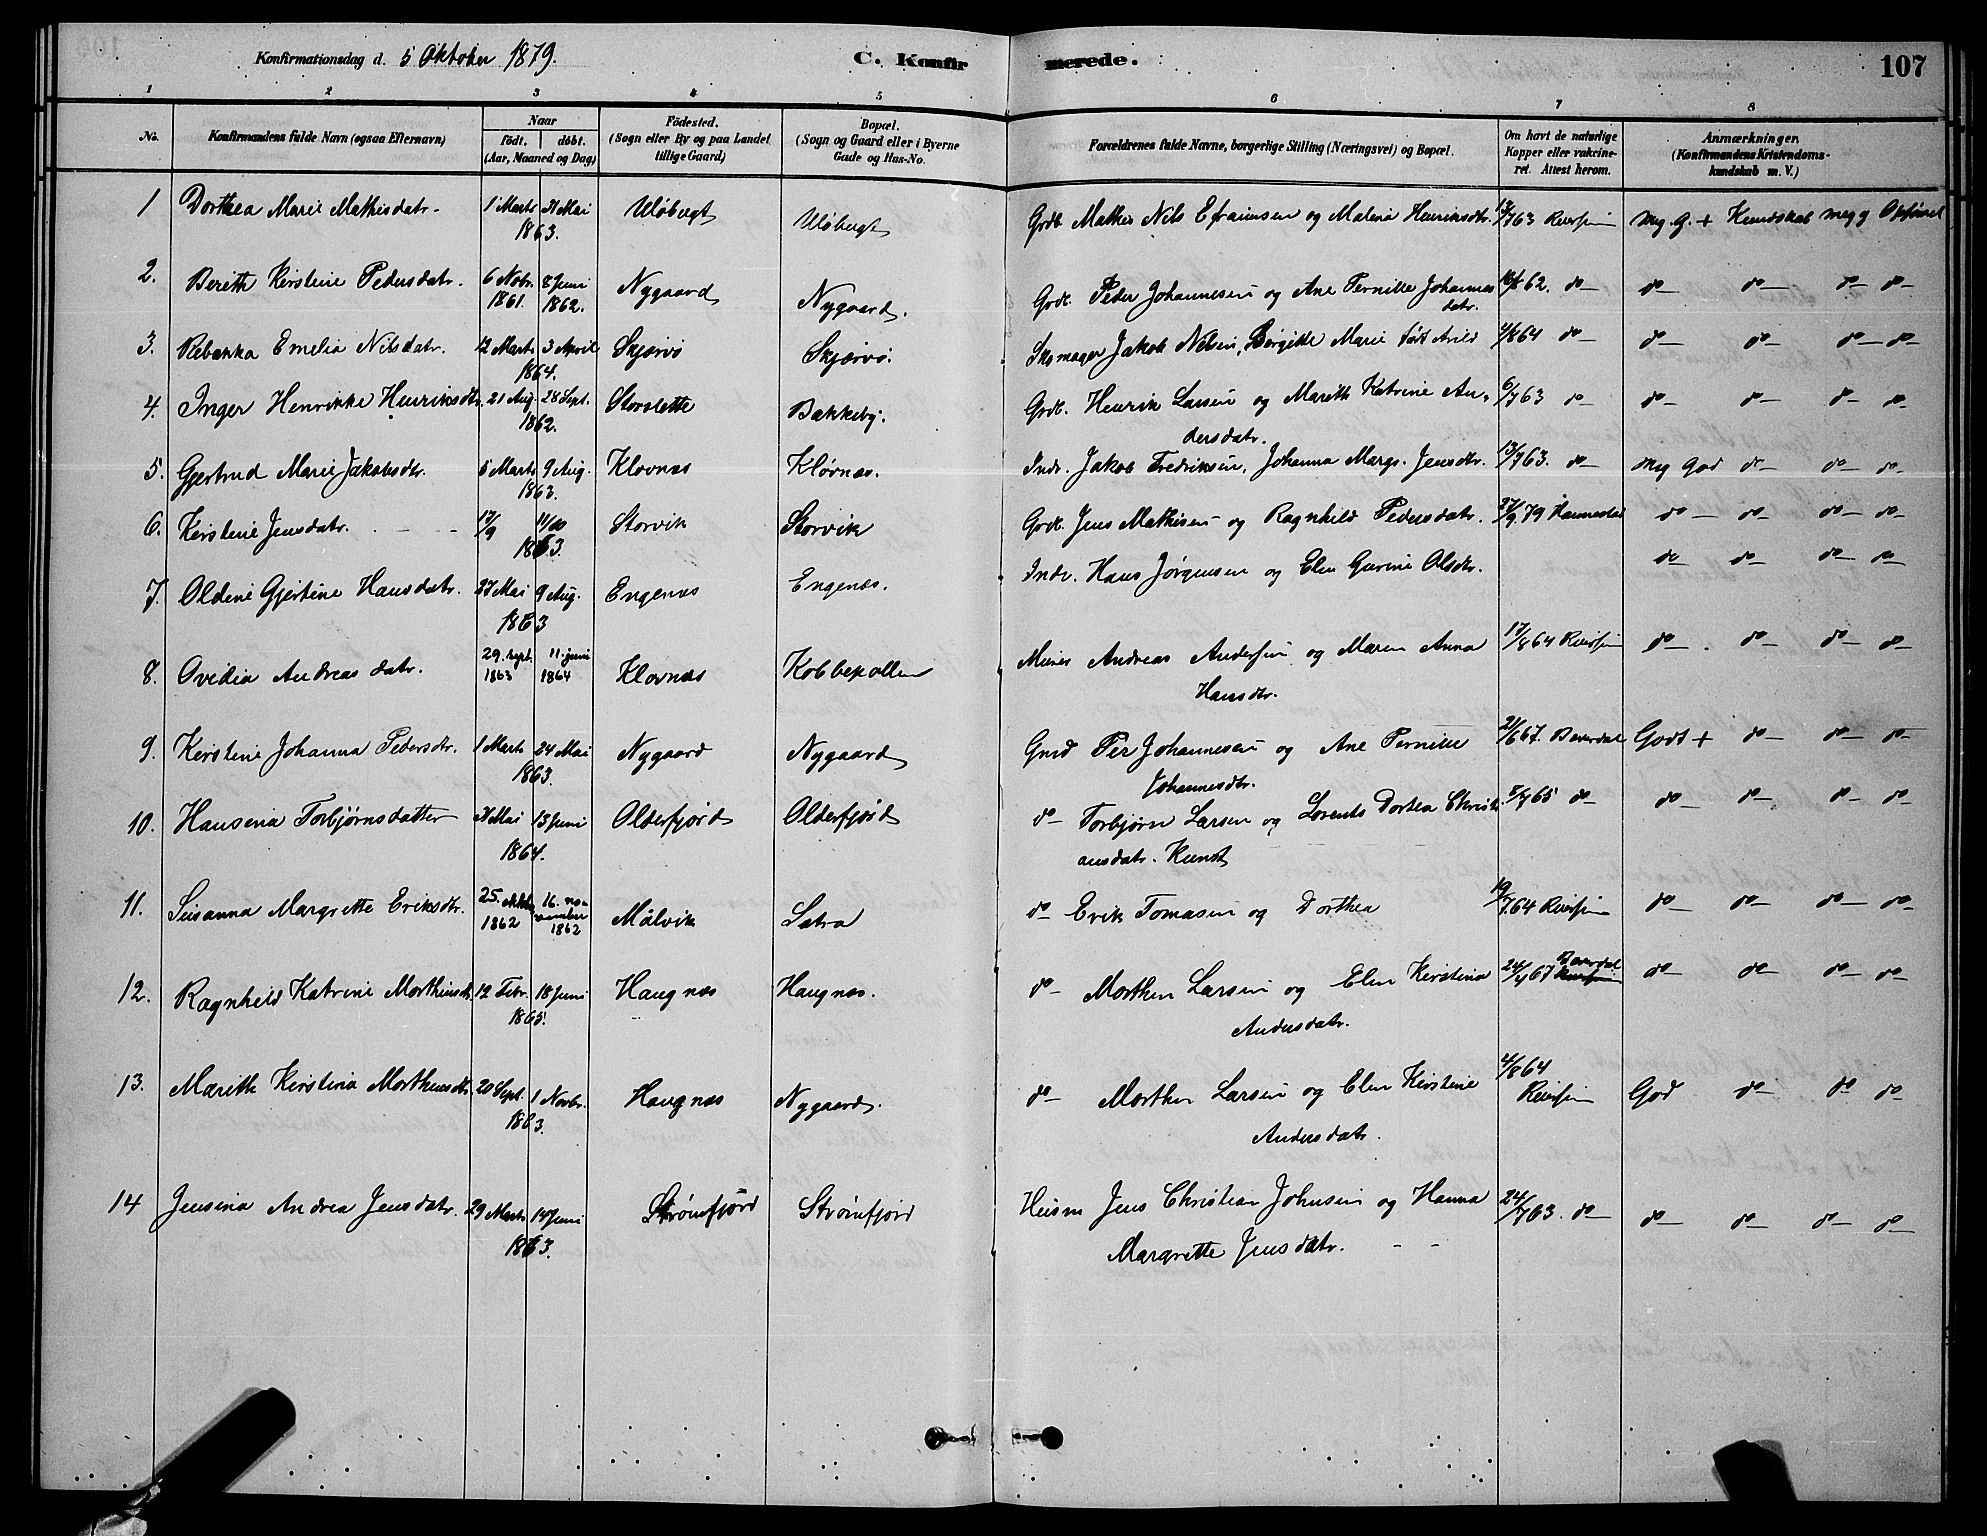 Konfirmationsdag d. 5 Oktober 1879. C. Konfirmerede. 107
1 2 3 4 5 6 7 8
No. Konfirmandens fulde Navn (ogsaa Efternavn) Naar födt. döbt. (Aar, Maaned og Dag) Födested. (Sogn eller By og paa Landet tillige Gaard) Bopæl. (Sogn og Gaard eller i Byerne Gade og Hus-No. Forældrenes fulde Navne, borgerlige Stilling (Næringsvei) og Bopæl. Om havt de naturlige Kopper eller vakcineret. Attest herom. Anmærkninger. (Konfirmandens Kristendomskundskab m. V.)
1 Dorthea Marie Mathisdatr. 1 Marts 31 Mai 1863. Uløbugt Uløbugt Grdb. Mathis Nils Efraimsen og Malena Henriksdtr. 13/7 63 Meg. G. + Kundskab meg g Opførsel
2. Berith Kirstine Pedersdatr. 6 Nobr. 1861. 8 Juni 1862. Nygaard Nygaard. Grdb. Peder Johannesen og Ane Pernille Johannesdatr. 62. do do do do do
3. Rebekka Emelia Nilsdatr. 12 Marts 3 April 1864. Skjærvø Skjærvø. Skomager Jakob Nelsen, Borgitte Marie født Arild 4/8 64 do do do do do
4. Inger Henrikke Henriksdtr. 21 Aug. 28 Sept. 1862. Storslette Bakkeby. Grdb. Henrik Larsen og Marith Katrine Andersdatr. 6/7 63 do do do do do
5. Gjertrud Marie Jakobsdtr. 5 Marts 9 Aug. 1863. Klovnæs Kløvnæs. Indr. Jakob Fredriksen, Johanna Margr. Jensdtr. 13/7 63. do Meg God do do do
6. Kirstine Jensdatr. 17/9 11/10 1863. Storvik Storvik Grdb. Jens Mathisen og Ragnhild Pedersdatr. 27/9 79 Hannestad do do do do
7. Oldine Gjertine Hansdatr. 27 Mai 9 Aug. 1863 Engenæs Engenæs. Indr. Hans Jørgensen og Elen Gurine Olsdtr. do do do do
8. Ovidia Andreas datr. 29. sept. 1863 11. juni 1864 Klovnæs Kobbepollen Andreas Andersen og Maren Anna Hansdtr. 17/8 64 do do do do
9. Kirstine Johanna Pedersdtr. 1 Marts 24 Mai 1863. Nygaard Nygaard Per Johannesen og Ane Pernille Johannesdtr. 21/6 67. Baverdal Godt + do do do
10. Hansena Torbjørnsdatter 31 Mai 13 Juni 1864. Olderfjord Olderfjord do Torbjørn Larsen og Lorents Dortea Christiansdatr. Kunst 5/7 65 do do do do do
11. Susanna Margrette Eriksdtr. 25. oktbr 1862 16. november 1862 Målvik Satra do Erik Tomasen og Dorthea 19/7 64 do do do do
12. Ragnhild Katrine Morthensdtr. 12 Febr. 18 Juni 1865. Haugnæs Haugnæs. do Morthen Larsen og Elen Kirstina Andersdatr. 24/4 67 Baverdal do do do do
13. Marith Kirstina Morthensdtr. 20 Sept. 1 Novbr. 1863. Haugnæs Nygaard. do Morthen Larsen og Elen Kirstine Andersdatr. 4/8 64 God do do do
14 Jensina Andrea Jensdatr. 29 Marts 14 Juni 1863. Strømfjord Strømfjord Husm Jens Christian Johnsen og Hanna Margrette Jensdatr. 24/7 63. do do do do do